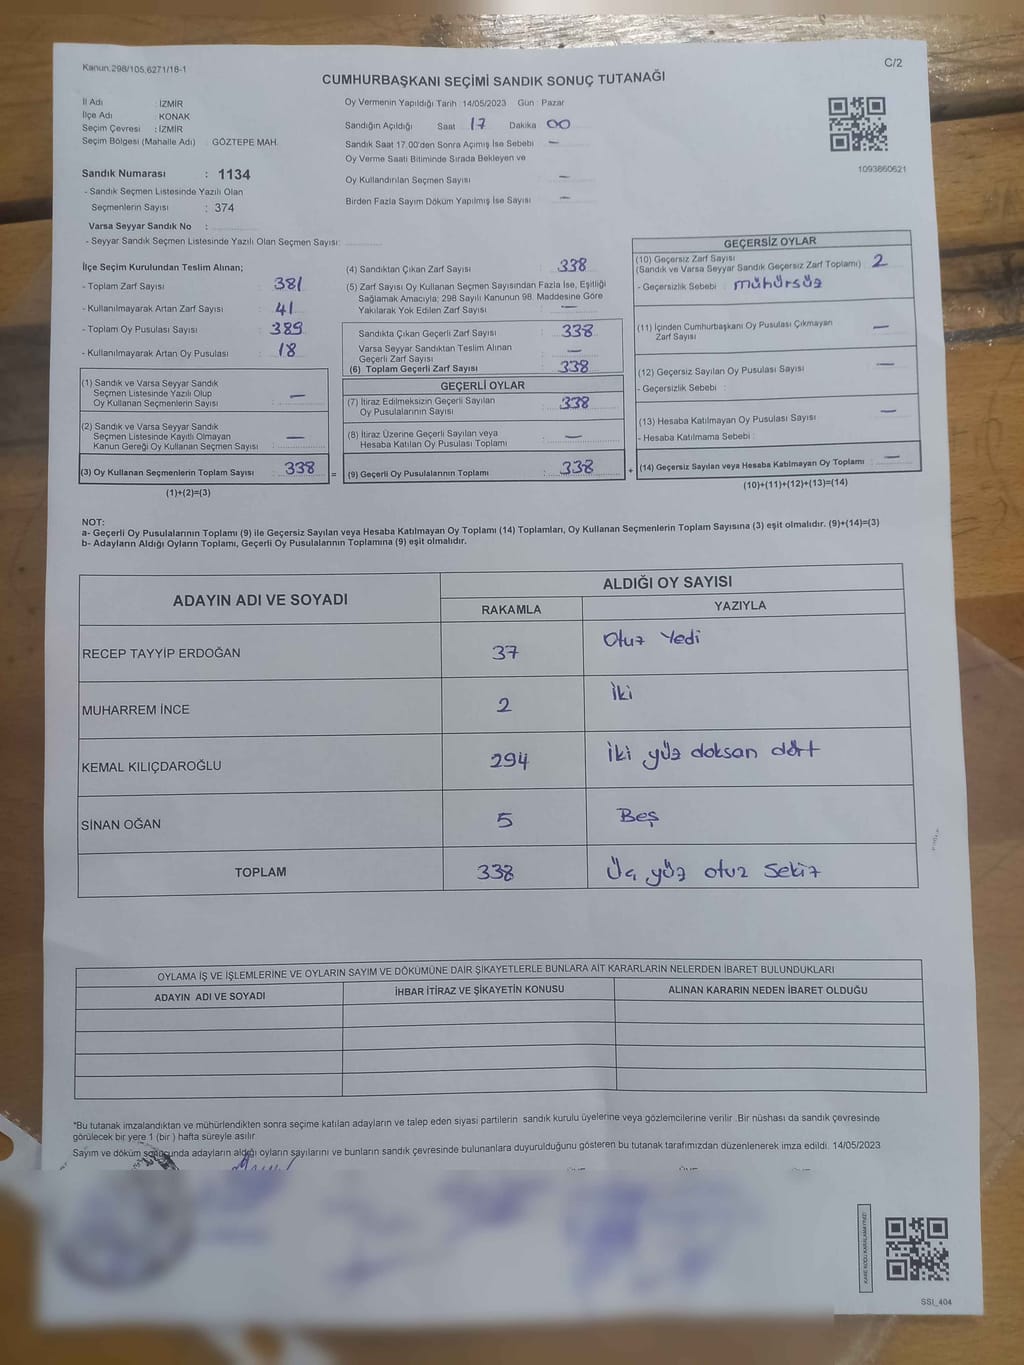 Kanun,298/105,6271/18-1
C/2
CUMHURBAŞKANI SEÇİMİ SANDIK SONUÇ TUTANAĞI
İl Adı : İZMİR
İlçe Adı : KONAK
Seçim Çevresi : İZMİR
Seçim Bölgesi (Mahalle Adı) : GÖZTEPE MAH.
Sandık Numarası : 1134
- Sandık Seçmen Listesinde Yazılı Olan
Seçmenlerin Sayısı : 374
Varsa Seyyar Sandık No :
- Seyyar Sandık Seçmen Listesinde Yazılı Olan Seçmen Sayısı:
Oy Vermenin Yapıldığı Tarih :14/05/2023 Gün : Pazar
Sandığın Açıldığı Saat 17 Dakika 00
Sandık Saat 17.00'den Sonra Açımış İse Sebebi —
Oy Verme Saati Bitiminde Sırada Bekleyen ve
Oy Kullandırılan Seçmen Sayısı —
Birden Fazla Sayım Döküm Yapılmış İse Sayısı —
1093860621
İlçe Seçim Kurulundan Teslim Alınan;
- Toplam Zarf Sayısı : 381
- Kullanılmayarak Artan Zarf Sayısı : 41
- Toplam Oy Pusulası Sayısı : 389
- Kullanılmayarak Artan Oy Pusulası : 18
(1) Sandık ve Varsa Seyyar Sandık
Seçmen Listesinde Yazılı Olup
Oy Kullanan Seçmenlerin Sayısı : —
(2) Sandık ve Varsa Seyyar Sandık
Seçmen Listesinde Kayıtlı Olmayan
Kanun Gereği Oy Kullanan Seçmen Sayısı : —
(3) Oy Kullanan Seçmenlerin Toplam Sayısı : 338 =
(1)+(2)=(3)
(4) Sandıktan Çıkan Zarf Sayısı : 338
(5) Zarf Sayısı Oy Kullanan Seçmen Sayısından Fazla İse, Eşitliği
Sağlamak Amacıyla; 298 Sayılı Kanunun 98. Maddesine Göre
Yakılarak Yok Edilen Zarf Sayısı : —
Sandıkta Çıkan Geçerli Zarf Sayısı : 338
Varsa Seyyar Sandıktan Teslim Alınan
Geçerli Zarf Sayısı : —
(6) Toplam Geçerli Zarf Sayısı : 338
GEÇERLİ OYLAR
(7) İtiraz Edilmeksizin Geçerli Sayılan
Oy Pusulalarının Sayısı : 338
(8) İtiraz Üzerine Geçerli Sayılan veya
Hesaba Katılan Oy Pusulası Toplamı : —
(9) Geçerli Oy Pusulalarının Toplamı : 338 +
GEÇERSİZ OYLAR
(10) Geçersiz Zarf Sayısı
(Sandık ve Varsa Seyyar Sandık Geçersiz Zarf Toplamı) : 2
- Geçersizlik Sebebi : mühürsüz
(11) İçinden Cumhurbaşkanı Oy Pusulası Çıkmayan
Zarf Sayısı : —
(12) Geçersiz Sayılan Oy Pusulası Sayısı : —
- Geçersizlik Sebebi :
(13) Hesaba Katılmayan Oy Pusulası Sayısı : —
- Hesaba Katılmama Sebebi :
(14) Geçersiz Sayılan veya Hesaba Katılmayan Oy Toplamı : —
(10)+(11)+(12)+(13)=(14)
NOT:
a- Geçerli Oy Pusulalarının Toplamı (9) ile Geçersiz Sayılan veya Hesaba Katılmayan Oy Toplamı (14) Toplamları, Oy Kullanan Seçmenlerin Toplam Sayısına (3) eşit olmalıdır. (9)+(14)=(3)
b- Adayların Aldığı Oyların Toplamı, Geçerli Oy Pusulalarının Toplamına (9) eşit olmalıdır.
ADAYIN ADI VE SOYADI
ALDIĞI OY SAYISI
RAKAMLA YAZIYLA
RECEP TAYYİP ERDOĞAN 37 Otuz Yedi
MUHARREM İNCE 2 İki
KEMAL KILIÇDAROĞLU 294 iki yüz doksan dört
SİNAN OĞAN 5 Beş
TOPLAM 338 Üç yüz otuz Sekiz
OYLAMA İŞ VE İŞLEMLERİNE VE OYLARIN SAYIM VE DÖKÜMÜNE DAİR ŞİKAYETLERLE BUNLARA AİT KARARLARIN NELERDEN İBARET BULUNDUKLARI
ADAYIN ADI VE SOYADI İHBAR İTİRAZ VE ŞİKAYETİN KONUSU ALINAN KARARIN NEDEN İBARET OLDUĞU
*Bu tutanak imzalandıktan ve mühürlendikten sonra seçime katılan adayların ve talep eden siyasi partilerin sandık kurulu üyelerine veya gözlemcilerine verilir .Bir nüshası da sandık çevresinde
görülecek bir yere 1 (bir ) hafta süreyle asılır
Sayım ve döküm sonucunda adayların aldığı oyların sayılarını ve bunların sandık çevresinde bulunanlara duyurulduğunu gösteren bu tutanak tarafımızdan düzenlenerek imza edildi. 14/05/2023
KARE KODU KARALAMAYINIZ!
SSİ_404